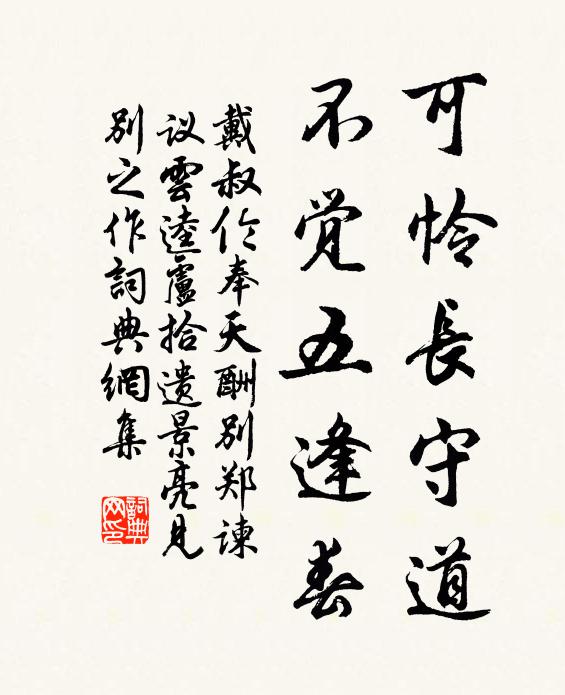 可怜長守道
不觉五逢春
戴叔伦奉天酬别郑谏
议雲逵盧拾遗景亮见
别之作詞典網集
詞典網印